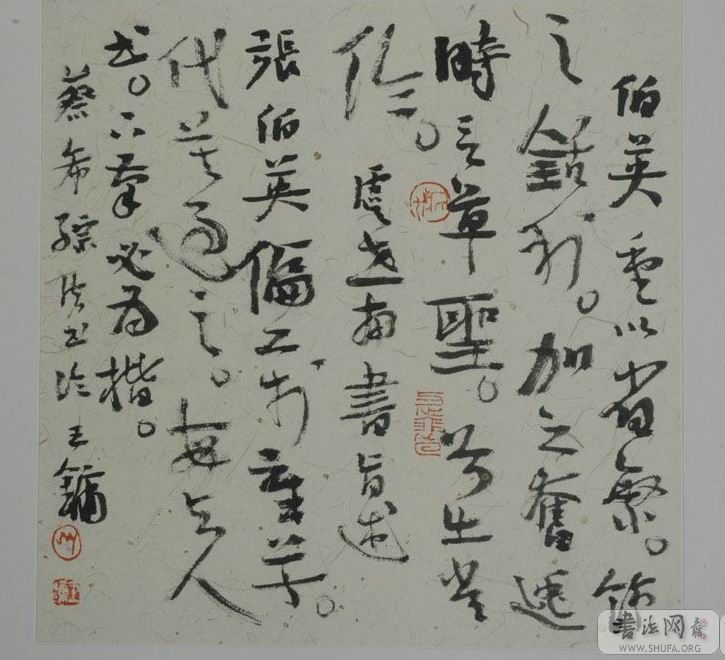 伯英重以省繁。飾
之銛利。加之奮逸
時言草聖。首出常
倫。虞世南書旨述
張伯英偏工於章草。
代莫過之。每與人
書。下筆必為楷。
蔡希綜法書論 王鏞
書法网
WWW.SHUFA.ORG